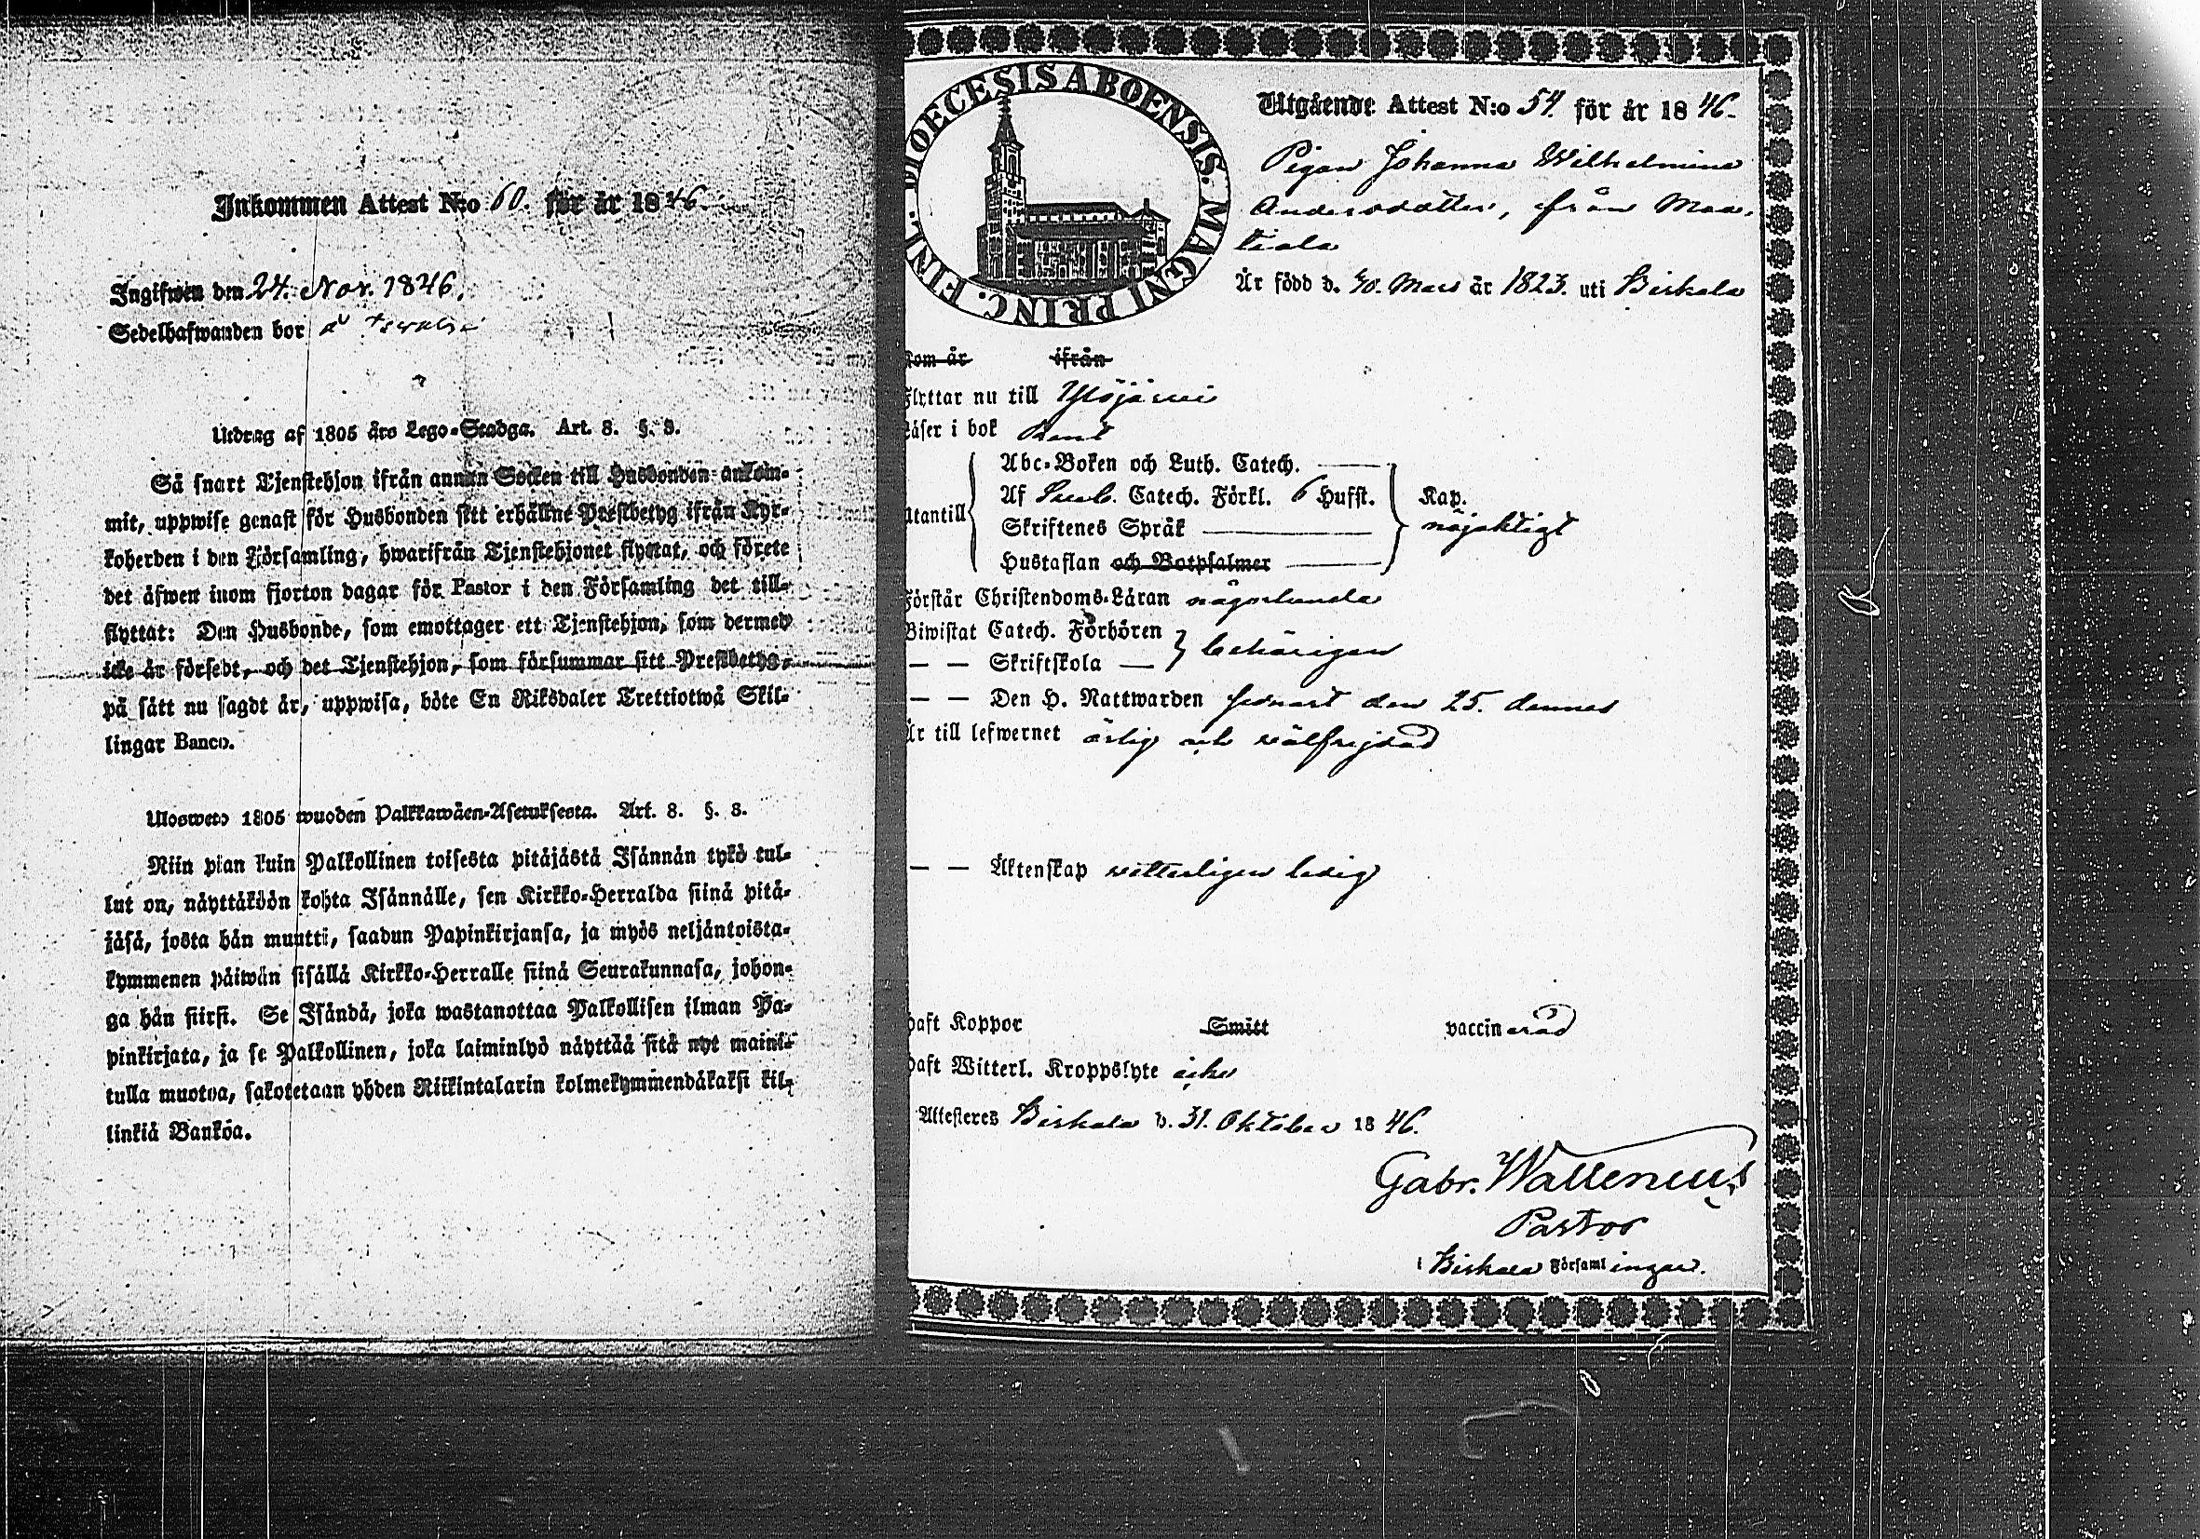 Inkommen Attest N:o 60. för år 1846.
Ingifwen den 24. Nov. 1846.
Sedelhafwanden bor å
Utdrag af 1805 års Lego-Stadga. Art. 8. §. 3.
Så snart Tjenstehjon ifrån annan Socken till Husbonden ankom-
mit, uppwise genast för Husbonden sitt erhållne Prestbetyg ifrån Kyr-
koherden i den Församling, hwarifrån Tjenstehjonet flyttat, och förete
det äfwen inom fjorton dagar för Pastor i den Församling det till-
flyttat: Den Husbonde, som emottager ett Tjenstehjon, som dermed
icke är försedt, och det Tjenstehjon, som försummar sitt Prestbetyg,
på sätt nu sagdt är, uppwisa, böte En Riksdaler Trettiotwå Skil-
lingar Banco.
Uloswето 1805 wuoden Palkkawäen-Asetuksesta. Art. 8. §. 3.
Niin pian kuin Palkollinen toisesta pitäjästä Isännän tykö tul-
lut on, näyttäköön kohta Isännälle, sen Kirkko-Herralda siinä pitä-
jäsä, josta hän muutti, saadun Papinkirjansa, ja myös neljäntoista-
kymmenen päiwän sisällä Kirkko-Herralle siinä Seurakunnasa, johon-
ga hän siirsi. Se Isändä, joka wastanottaa Palkollisen ilman Pa-
pinkirjata, ja se Palkollinen, joka laiminlyö näyttää sitä nyt maini-
tulla muotoa, sakotetaan yhden Riikintalarin kolmekymmendäkaksi kil-
linkiä Bankoa.
DIOECESIS ABOENSIS. MAGNI PRINC. FINL.
Utgående Attest N:o 54. för år 1846.
Pigan Johanna Wilhelmina
Andersdotter, från Maa-
tiala
Är född d. 10. Mars år 1823. uti Birkala
kom år ifrån
Flyttar nu till Ylöjärvi
Läser i bok
Abc-Boken och Luth. Catech.
Utantill Af Sveb. Catech. Förkl. 6 Hufst. Kap.
Skriftenes Språk nöjaktigt
Hustaflan och Botpsalmer
Förstår Christendoms-Läran någorlunda
Biwistat Catech. Förhören
— — Skriftskola — behörigen
— — Den H. Nattwarden senast den 25. dennes
Är till lefwernet ärlig och wälfrejdad
— — Äktenskap wetterligen ledig
haft Koppor Smitt vaccinerad
haft Witterl. Kroppslyte icke
Attesteres Birkala d. 31. Oktober 1846.
Gabr. Wallenius
Pastor
i Birkala Församlingar.